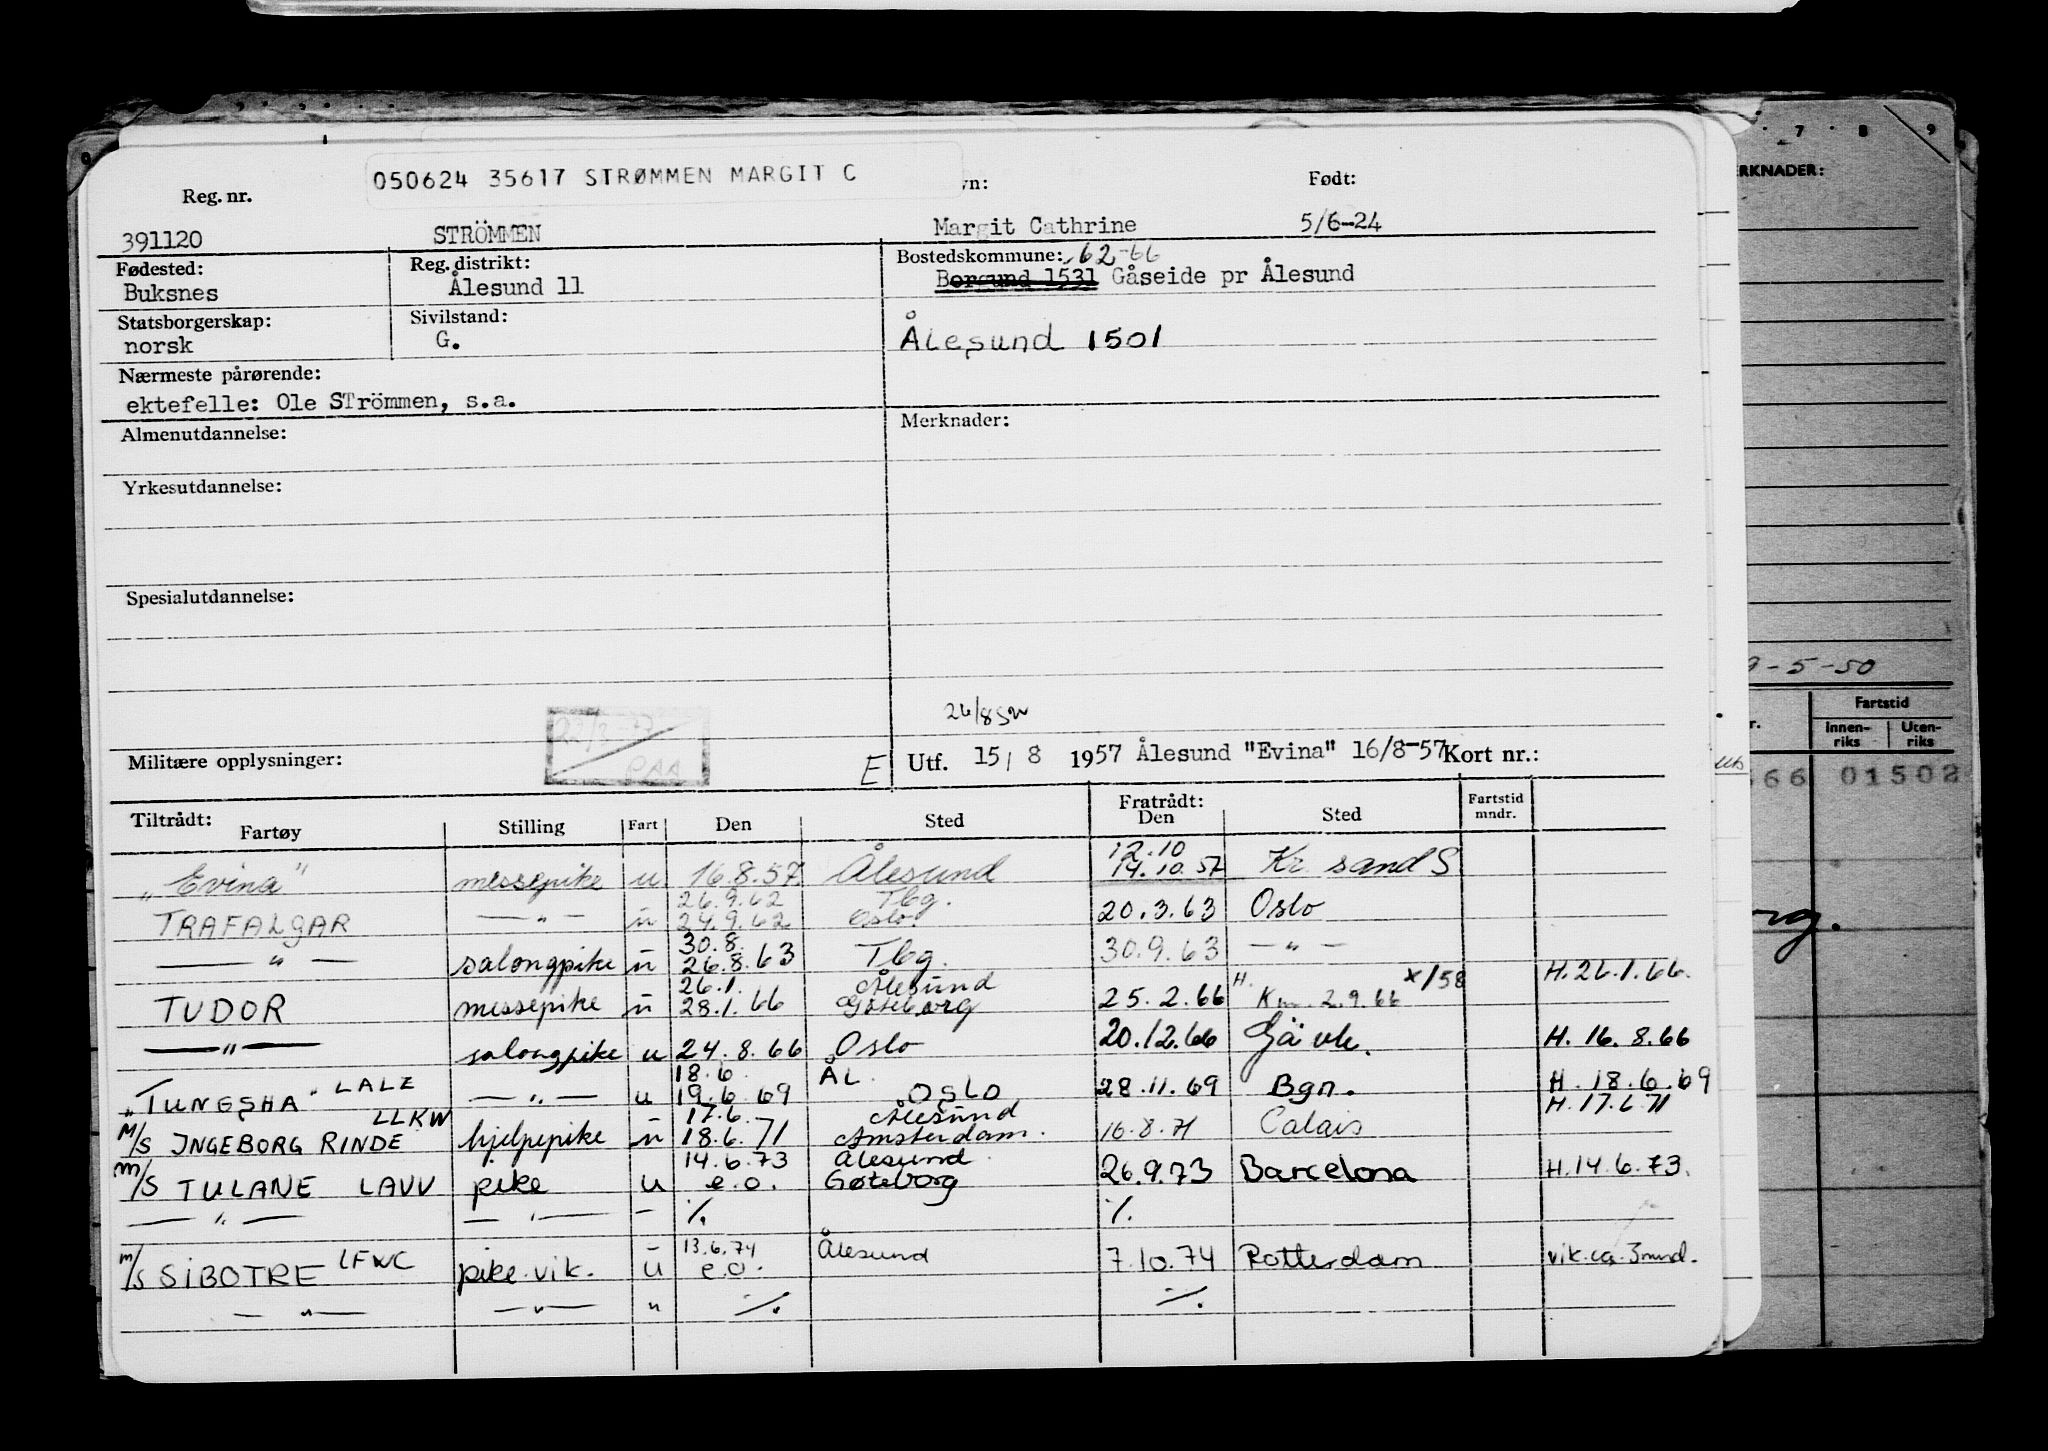 050624 35617 STRØMMEN MARGIT C
Reg. nr. vn: Født:
391120 STRÖMMEN Margit Cathrine 5/6-24
Fødested: Reg. distrikt: Bostedskommune: 62-66
Buksnes Ålesund 11 Borgund 1531 Gåseide pr Ålesund
Statsborgerskap: Sivilstand:
norsk G. Ålesund 1501
Nærmeste pårørende:
ektefelle: Ole STrömmen, s.a.
Almenutdannelse: Merknader:
Yrkesutdannelse:
Spesialutdannelse:
26/8
Militære opplysninger: E Utf. 15/8 1957 Ålesund "Evina" 16/8-57 Kort nr.:
Tiltrådt: Fratrådt:
Fartøy Stilling Fart Den Sted Den Sted Fartstid mndr.
12.10
"Evina" messepike u 16.8.57 Ålesund 14.10.57 Kr. sand S
26.9.62 Tbg.
TRAFALGAR — " — u 24.9.62 Oslo. 20.3.63 Oslo
30.8.
— " — salongpike u 26.8.63 Tbg. 30.9.63 — " —
26.1. Ålesund H. x/58 H. 26.1.66.
TUDOR messepike u 28.1.66 Göteborg 25.2.66 2.9.66
— " — salongpike u 24.8.66 Oslo 20.12.66 Gävle. H. 16.8.66
18.6. ÅL.
"TUNGSHA" LALZ — " — u 19.6.69 OSLO 28.11.69 Bgn. H. 18.6.69
LLKW 17.6. Ålesund H. 17.6.71
M/S INGEBORG RINDE hjelpepike u 18.6.71 Amsterdam. 16.8.71 Calais
14.6.73 Ålesund
m/S TULANE LAVV pike u e.o. Gøteborg 26.9.73 Barcelona H. 14.6.73.
— " — — " — - ./. ./.
13.6.74
m/S SIBOTRE LFWC pike vik. u e.o. Ålesund 7.10.74 Rotterdam vik. ca. 3 mnd.
— " — — " — " ./. ./.
7 8 9
ERKNADER:
9-5-50
Fartstid
r. Innenriks Utenriks
66 01502